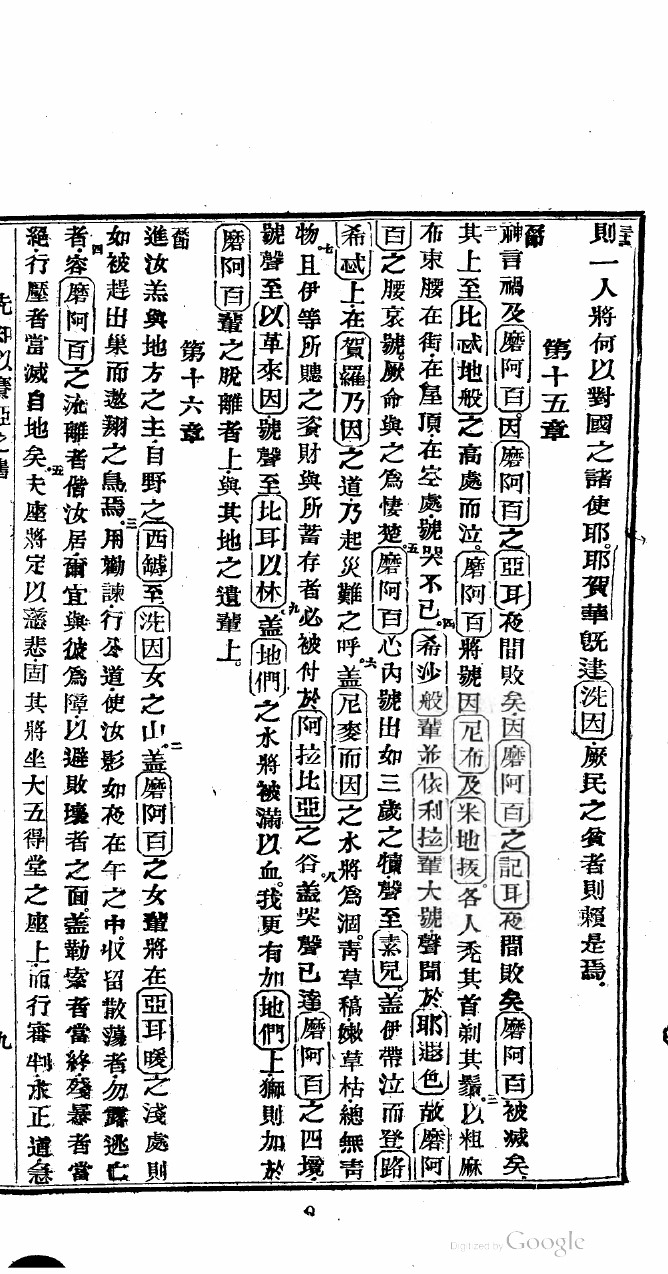 三十二則一人將何以對國之諸使耶耶賀華旣建洗因厥民之貧者則賴是焉
第十五章
一節神言禍及磨阿百因磨阿百之亞耳夜間敗矣因磨阿百之記耳夜間敗矣磨阿百被滅矣
二其上至比忒地般之高處而泣磨阿百將號因尼布及米地拔各人禿其首剃其鬚三以粗麻
布束腰在街在屋頂在空處號哭不已四希沙般輩並依利拉輩大號聲聞於耶遐色故磨阿
百之腰哀號厥命與之爲悽楚五磨阿百心內號出如三歲之犢聲至素兒蓋伊帶泣而登路
希忒上在賀羅乃因之道乃起災難之呼六蓋尼麥而因之水將爲涸靑草稿嫩草枯總無靑
物七且伊等所賸之資財與所蓄存者必被付於阿拉比亞之谷八蓋哭聲已達磨阿百之四境
號聲至以革來因號聲至比耳以林九蓋地們之水將被滿以血我更有加地們上獅則加於
磨阿百輩之脫離者上與其地之遺輩上
第十六章
一節進汝羔與地方之主自野之西鏬至洗因女之山二蓋磨阿百之女輩將在亞耳暖之淺處則
如被趕出巢而遨翔之鳥焉三用勸諫行公道使汝影如夜在午之中收留散蕩者勿露逃亡
者四容磨阿百之流離者偕汝居爾宜與彼爲障以避敗壞者之面蓋勒索者當終殘暴者當
絕行壓者當滅自地矣五夫座將定以慈悲固其將坐大五得堂之座上而行審判求正道急
先知以賽亞之書
九
9
Digitized by Google